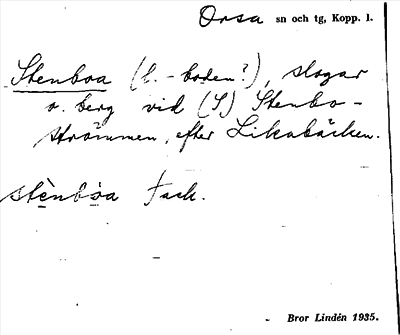 Orsa sn och tg, Kopp. l.
Stenboa (l. - boden?), skogar
o. berg vid (S) Stenbo-
strömmen, efter Likabäcken.
stènbòa Fack.
Bror Lindén 1935.